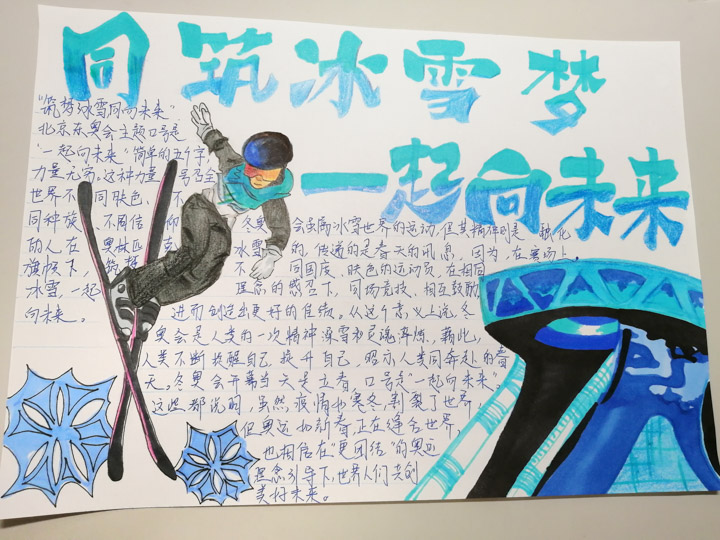 同筑冰雪梦
一起向未来
"筑梦冰雪同向未来"
北京冬奥会主题口号是
"一起向未来"简单的五个字,
力量无穷,这种力量号召全
世界不同肤色、不
同种族、不同信仰
的人在奥林匹克
旗帜下,筑梦
冰雪,一起
向未来。
冬奥会虽属冰雪世界的运动,但其精神则是融化
冰雪的,传递的是春天的风息,因为,在赛场上,
不同国度、肤色的运动员,在相同
理念的感召下,同场竞技、相互鼓励,
进而创造出更好的佳绩。从这个意义上说,冬
奥会是人类的一次精神深雪和灵魂淬炼,藉此,
人类不断提醒自己,提升自己,昭示人类同奔赴的春
天。冬奥会开幕当天是立春,口号是"一起向未来"。
这些都说明,虽然疫情如寒冬,割裂了世界,
但奥运如新春,正在缝合世界,
也相信在"更团结"的奥运
理念引导下,世界人们共创
美好未来。